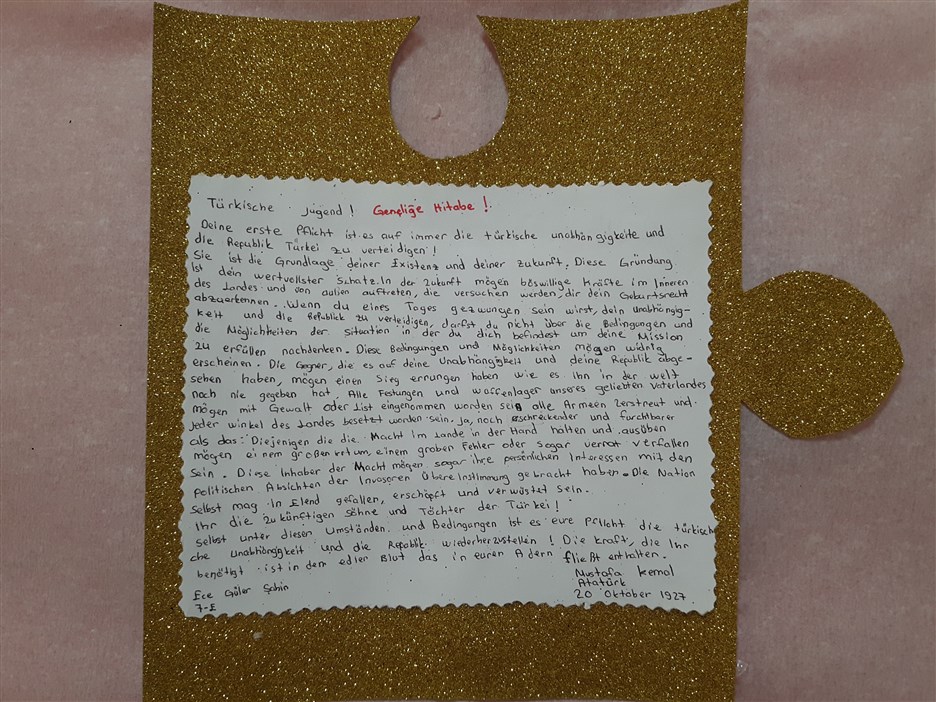 Türkische Jugend! Gençliğe Hitabe!
Deine erste Pflicht ist es auf immer die türkische unabhängigkeite und
die Republik Türkei zu verteidigen!
Sie ist die Grundlage deiner Existenz und deiner zukunft. Diese Gründung
ist dein wertvollster Schatz. In der Zukunft mögen böswillige Kräfte im Inneren
des Landes und von außen auftreten, die versuchen werden, dir dein Geburtsrecht
abzuerkennen. Wenn du eines Tages gezwungen sein wirst, dein unabhängig-
keit und die Republik zu verteidigen, darfst du nicht über die Bedingungen und
die Möglichkeiten der situation in der du dich befindest um deine Mission
zu erfüllen nachdenken. Diese Bedingungen und Möglichkeiten mögen widrig
erscheinen. Die Gegner, die es auf deine Unabhängigkeit und deine Republik abge-
sehen haben, mögen einen Sieg errungen haben wie es ihn in der welt
noch nie gegeben hat. Alle Festungen und waffenlager unseres geliebten Vaterlandes
mögen mit Gewalt oder List eingenommen worden sein alle Armeen zerstreut und
jeder winkel des Landes besetzt worden sein. Ja, noch erschreckender und furchtbarer
als das: Diejenigen die die Macht im Lande in der Hand halten und ausüben
mögen einem großen irrtum, einem groben Fehler oder sogar verrat verfallen
sein. Diese Inhaber der Macht mögen sogar ihre persönlichen Interessen mit den
politischen Absichten der Invasoren Übereinstimmung gebracht haben. Die Nation
selbst mag in Elend gefallen, erschöpft und verwüstet sein.
Ihr die zukünftigen Söhne und Töchter der Türkei!
Selbst unter diesen Umständen und Bedingungen ist es eure Pflicht die türkisch
che Unabhängigkeit und die Republik wiederherzustellen! Die kraft, die Ihr
benötigt ist in dem edler Blut das in euren Adern fließt erhalten.
Mustafa Kemal
Atatürk
20 Oktober 1927
Ece Güler Şahin
7-E